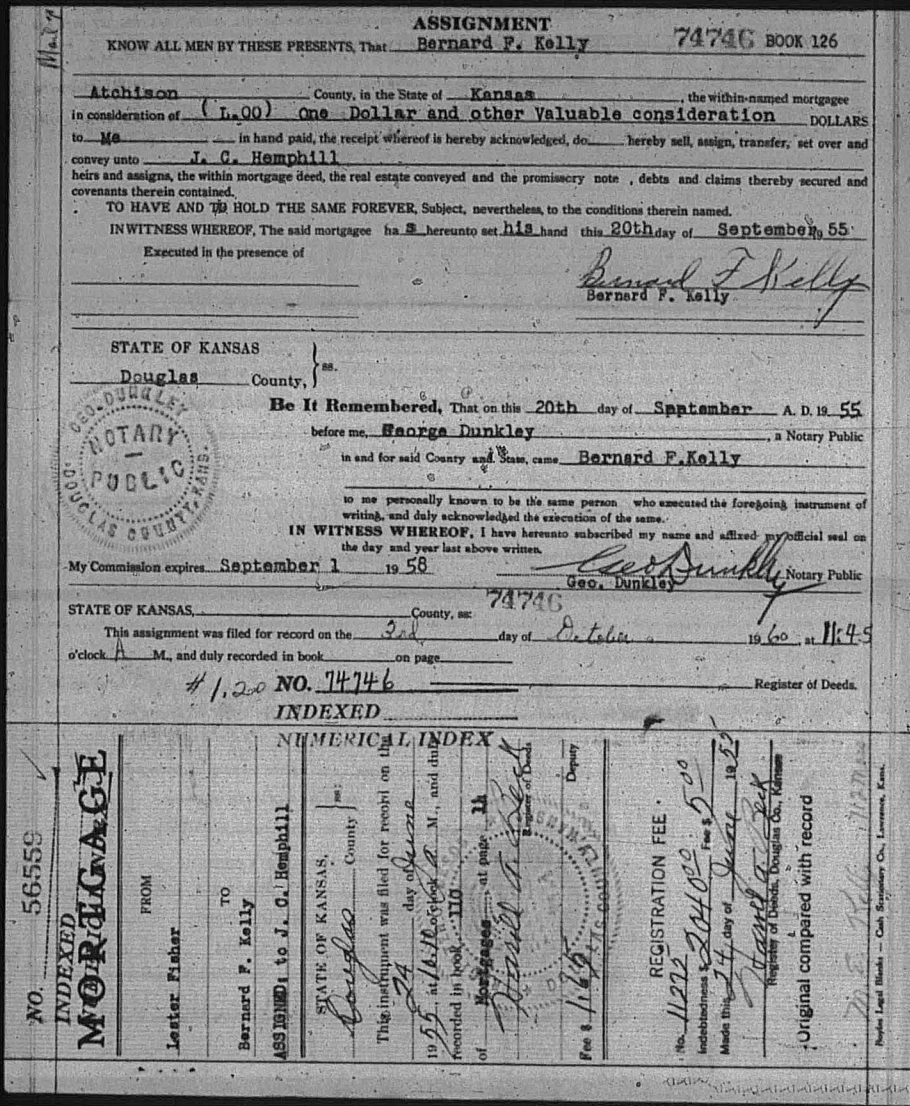 Mail
ASSIGNMENT
KNOW ALL MEN BY THESE PRESENTS, That Bernard F. Kelly 74746 BOOK 126
Atchison County, in the State of Kansas, the within-named mortgagee
in consideration of (1.00) One Dollar and other Valuable consideration DOLLARS
to Me in hand paid, the receipt whereof is hereby acknowledged, do hereby sell, assign, transfer, set over and
convey unto J. C. Hemphill
heirs and assigns, the within mortgage deed, the real estate conveyed and the promissory note , debts and claims thereby secured and
covenants therein contained.
TO HAVE AND TO HOLD THE SAME FOREVER, Subject, nevertheless, to the conditions therein named.
IN WITNESS WHEREOF, The said mortgagee has hereunto set his hand this 20th day of September, 19 55
Executed in the presence of
Bernard F Kelly
Bernard F. Kelly
STATE OF KANSAS
Douglas County, } ss.
GEO. DUNKLEY
NOTARY
PUBLIC
DOUGLAS COUNTY, KANS.
Be It Remembered, That on this 20th day of September A. D. 19 55
before me, George Dunkley, a Notary Public
in and for said County and State, came Bernard F.Kelly
to me personally known to be the same person who executed the foregoing instrument of
writing, and duly acknowledged the execution of the same.
IN WITNESS WHEREOF, I have hereunto subscribed my name and affixed my official seal on
the day and year last above written.
My Commission expires September 1 19 58
Geo Dunkley
Geo. Dunkley Notary Public
74746
STATE OF KANSAS, County, ss:
This assignment was filed for record on the 3rd day of October 1960, at 11:45
o'clock A M., and duly recorded in book on page
# 1.20 NO. 74746 Register of Deeds.
INDEXED
NUMERICAL INDEX
NO. 56559
INDEXED
MORTGAGE
FROM
Lester Fisher
TO
Bernard F. Kelly
ASSIGNED to J. C. Hemphill
STATE OF KANSAS,
Douglas County } ss:
This instrument was filed for record on the
24 day of June
1955, at o'clock A M., and duly
recorded in book 110
of Mortgages at page 11
Harold A Beck
Register of Deeds
Deputy
Fee $ 1.65
REGISTRATION FEE
No. 11272
Indebtedness $ 2040.00 Fee $ 5.00
Made this 24 day of June 1955
Harold A Beck
Register of Deeds, Douglas Co., Kansas
Original compared with record
Peoples Legal Blanks — Cash Stationery Co., Lawrence, Kans.